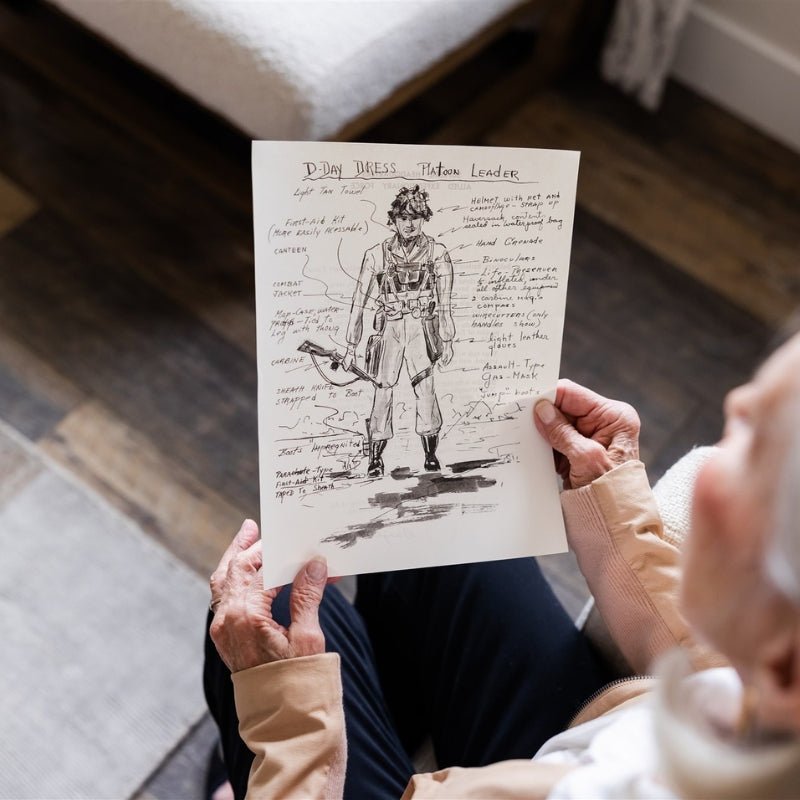 D-DAY DRESS PLATOON LEADER
Light Tan Towel
First-Aid Kit
(More Easily Acessable)
CANTEEN
COMBAT
JACKET
Map-Case, water-
Tied to
Leg with thong
CARBINE
SHEATH KNIFE
STRAPPED to Boot
Boots "Impregnated
Parachute-Type
First-Aid Kit
TAPED To Sheath
HELMET with net and
CAMOUFLAGE - STRAP UP
Haversack, content
sealed in waterproof bag
HAND GRENADE
BINOCULARS
Life-PRESERVER
inflated, under
all other equipment
2 carbine mag's
compass
WIRECUTTERS (only
handles show)
Light leather
gloves
Assault-Type
Gas-Mask
"Jump" boots